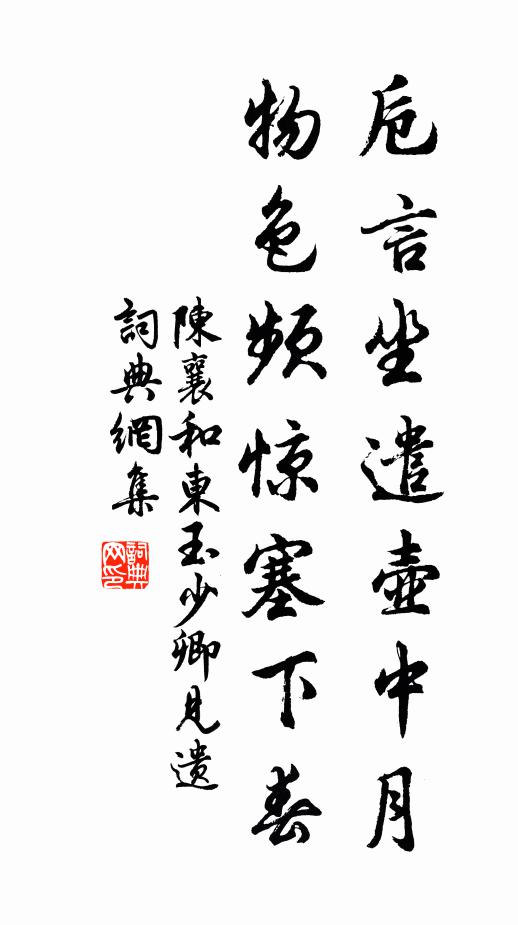 卮言坐遣壺中月
物色頻惊塞下春
陳襄和東玉少卿見遺
詞典網集
詞典网印